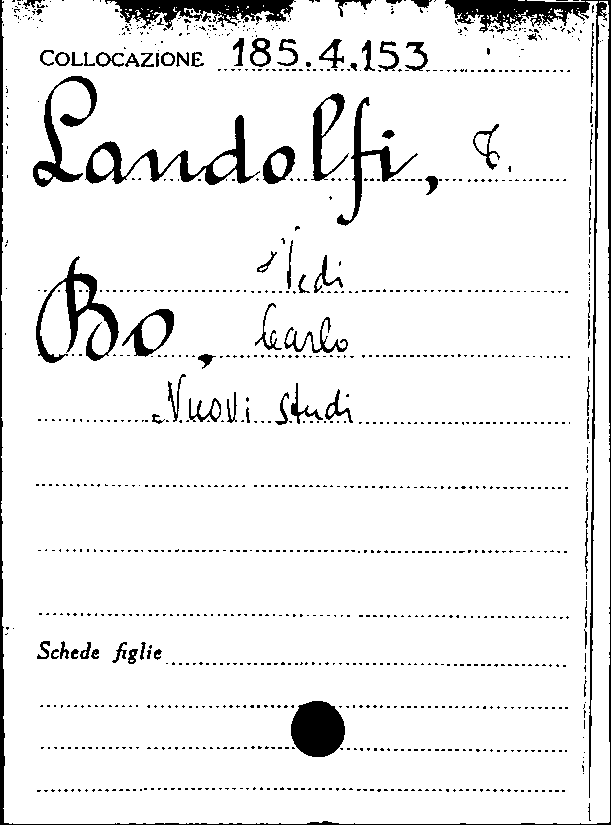 COLLOCAZIONE 185.4.153
Landolfi, T.
Vedi
Bo, Carlo
Nuovi studi
Schede figlie